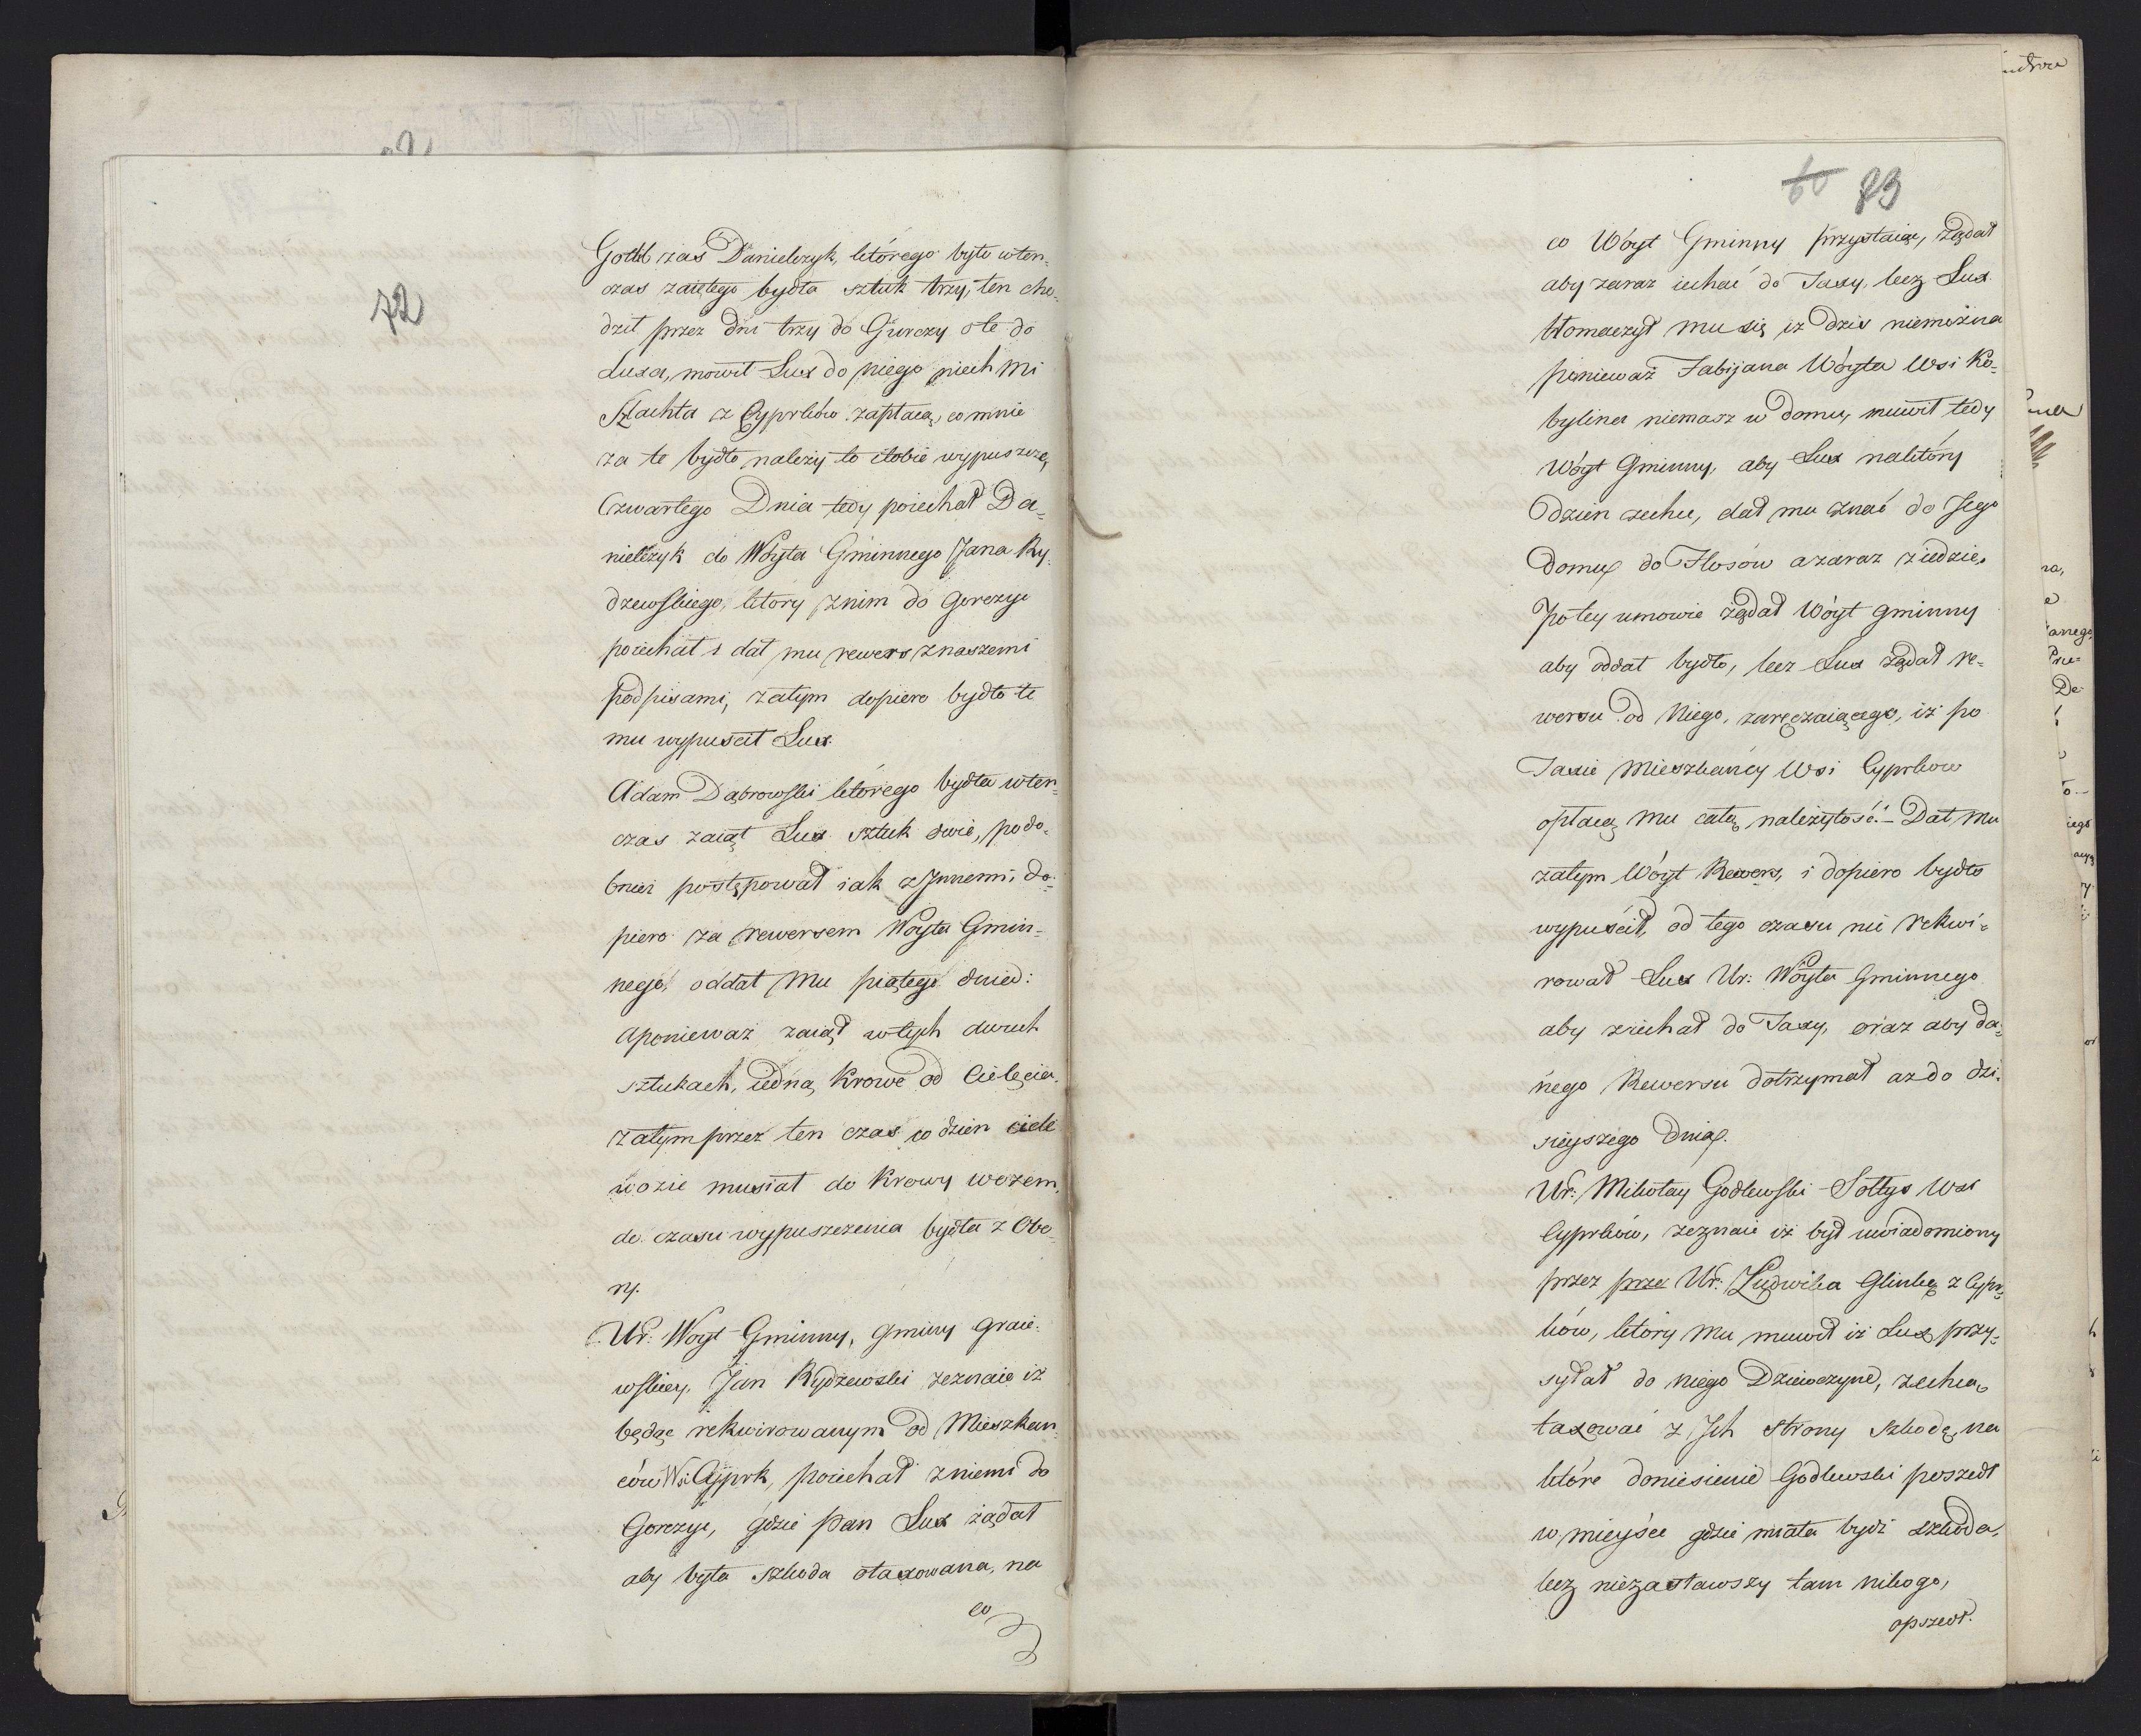 72
Gottlib zaś Danielczyk, którego było wten-
czas zaiętego bydła sztuk trzy, ten cho-
dził przez dni trzy do Gurczy o te do
Luxa, mowił Lux do niego niech mi
Szlachta z Cyprków zapłacą, co mnie
za te bydło należy to i tobie wypuszczę,
Czwartego Dnia tedy poiechał Da-
nielczyk do Woyta Gminnego Jana Ry-
dzewskiego, który z nim do Gorczyc
poiechał i dał mu rewers z naszemi
podpisami, zatym dopiero bydło te
mu wypuscił Lux.
Adam Dąbrowski którego bydła wten-
czas zaiął Lux sztuk dwie, podo-
bniez postępował iak z Jnnemi, do-
piero za rewersem Woyta Gmin-
nego, oddał mu piątego dnia:
a ponieważ zaiął w tych dwuch
sztukach, iedną Krowe od Cielęcia,
zatym przez ten czas co dzien ciele
wozić musiał do Krowy wozem,
do czasu wypuszczenia bydła z Obo-
ry.
Ur: Woyt Gminny, Gminy Graie-
wskiey, Jan Rydzewski zeznaie iż
będąc rekwirowanym od Mieszkan-
ców Wsi Cyprk, poiechał z niemi do
Gorczyc, gdzie Pan Lux żądał
aby była szkoda otaxowana, na
co
60 73
co Wóyt Gminny przystaiąc, żądał
aby zaraz iechać do Taxy, lecz Lux
tłomaczył mu się iż dziś niemożna
ponieważ Fabijana Wóyta Wsi Ko-
bylina niemasz w domu, muwił tedy
Wóyt Gminny, aby Lux na który
dzien zechce, dał mu znać do Jego
Domu do Flesów a zaraz ziedzie.
Po tey umowie żądał Wóyt Gminny
aby oddał bydło, lecz Lux żądał re-
wersu od Niego, zaręczaiącego, iż po
Taxie Mieszkańcy Wsi Cyprkow
opłacą mu całą należytość.– Dał mu
zatym Wóyt Rewers, i dopiero bydło
wypuścił, od tego czasu nie rekwi-
rował Lux Ur: Woyta Gminnego
aby ziechał do Taxy, oraz aby da-
nego Rewersu dotrzymał az do dzi-
sieyszego Dnia.
Ur: Mikołay Godlewski Sołtys Wsi
Cyprków, zeznaie iż był uwiadomiony
przez przez Ur: Ludwika Glinkę z Cypr-
ków, który mu muwił iż Lux przy-
syłał do niego Dziewczyne, zechcą
taxować z Jch strony szkodę, na
które doniesienie Godlewski poszedł
w mieyśce gdzie miała bydź szkoda,
lecz niezastawszy tam nikogo,
opszedł.